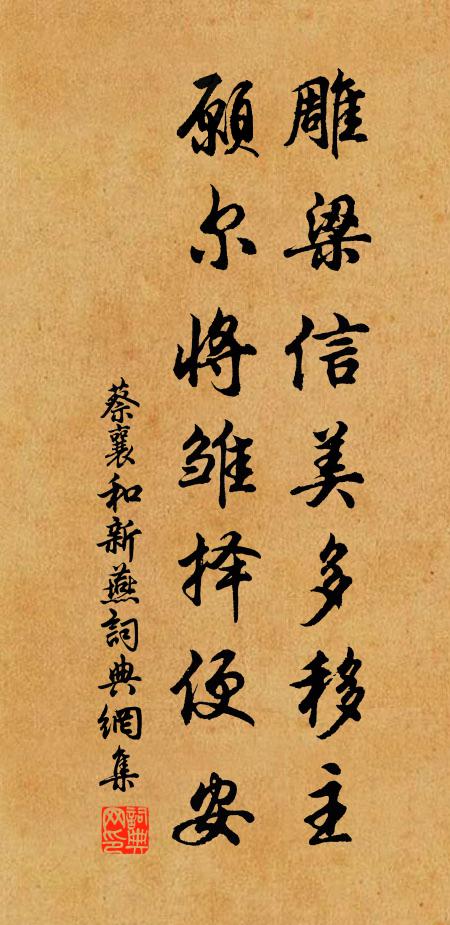 雕梁信美多移主
願尔将雏择便安
蔡襄和新燕詞典網集
詞典网印